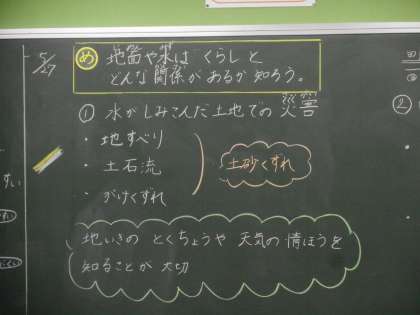 5/27
め 地面や水は くらしと
どんな関係があるか知ろう。
① 水がしみこんだ土地での災害
さいがい
・地すべり
・土石流
・がけくずれ
土砂くずれ
地いきの とくちょうや 天気の 情ほうを
知ることが 大切
②
すい